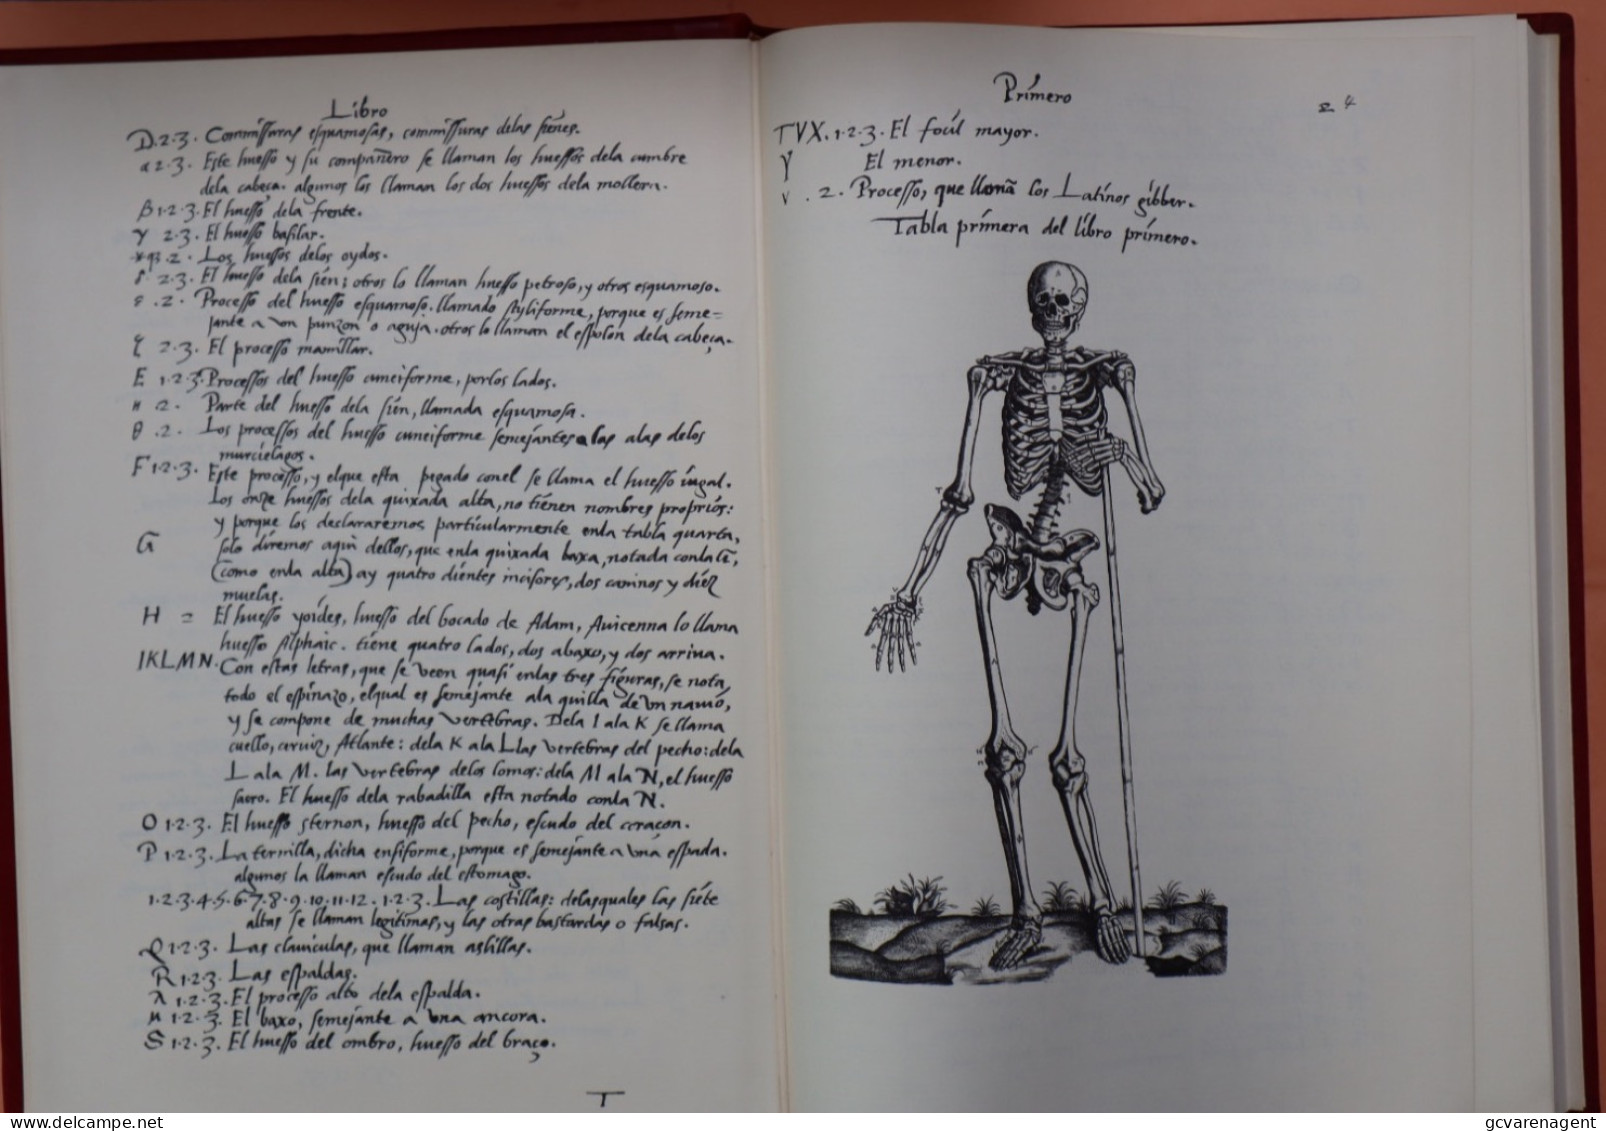 Libro
D.2.3. Commissuras esquamosas, commissuras delas sienes.
α 2.3. Este huesso y su compañero se llaman los huessos dela cumbre
dela cabeça. algunos los llaman los dos huessos dela mollera.
β 1.2.3. El huesso dela frente.
γ 2.3. El huesso basilar.
2. Los huessos delos oydos.
δ 2.3. El huesso dela sien; otros lo llaman huesso petroso, y otros esquamoso.
ε .2. Processo del huesso esquamoso. llamado styliforme, porque es seme=
jante a vn punzon o aguja. otros lo llaman el espolon dela cabeça.
ζ 2.3. El processo mamillar.
E 1.2.3. Processos del huesso cuneiforme, porlos lados.
η .2. Parte del huesso dela sien, llamada esquamosa.
θ .2. Los processos del huesso cuneiforme semejantes a las alas delos
murcielagos.
F 1.2.3. Este processo, y elque esta pegado conel se llama el huesso iugal.
Los onze huessos dela quixada alta, no tienen nombres proprios:
y porque los declararemos particularmente enla tabla quarta,
G solo diremos aqui dellos, que enla quixada baxa, notada conla G,
(como enla alta) ay quatro dientes incisores, dos caninos y diez
muelas.
H = El huesso yoides, huesso del bocado de Adam, Auicenna lo llama
huesso Alphaic. tiene quatro lados, dos abaxo, y dos arriua.
IKLMN. Con estas letras, que se veen quasi enlas tres figuras, se nota
todo el espinazo, elqual es semejante ala quilla de vn nauio,
y se compone de muchas vertebras. Dela I ala K se llama
cuello, ceruiz, Atlante: dela K ala L las vertebras del pecho: dela
L ala M. las vertebras delos lomos: dela M ala N, el huesso
sacro. El huesso dela rabadilla esta notado conla N.
O 1.2.3. El huesso sternon, huesso del pecho, escudo del coraçon.
P 1.2.3. La ternilla, dicha ensiforme, porque es semejante a vna espada.
algunos la llaman escudo del estomago.
1.2.3.4.5.6.7.8.9.10.11.12. 1.2.3. Las costillas: delasquales las siete
altas se llaman legitimas, y las otras bastardas o falsas.
Q 1.2.3. Las clauiculas, que llaman aslillas.
R 1.2.3. Las espaldas.
λ 1.2.3. El processo alto dela espalda.
μ 1.2.3. El baxo, semejante a vna ancora.
S 1.2.3. El huesso del ombro, huesso del braço.
T
Primero
4
TVX. 1.2.3. El focil mayor.
Y El menor.
ν .2. Processo, que llamã los Latinos gibber.
Tabla primera del libro primero.
delcampe.net
gcvarenagent